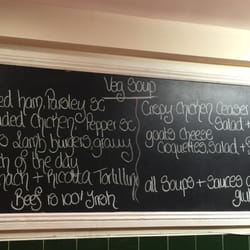 Veg Soup
ed ham, Parsley sc
ded chicken, Pepper sc
s Lamb burgers gravy
of the day
nach + Ricotta Tortillini
Beef is 100% Irish
Crispy Chicken Ceaser
Salad +
goats cheese
Coquettes, Salad +
all soups + sauces
glu